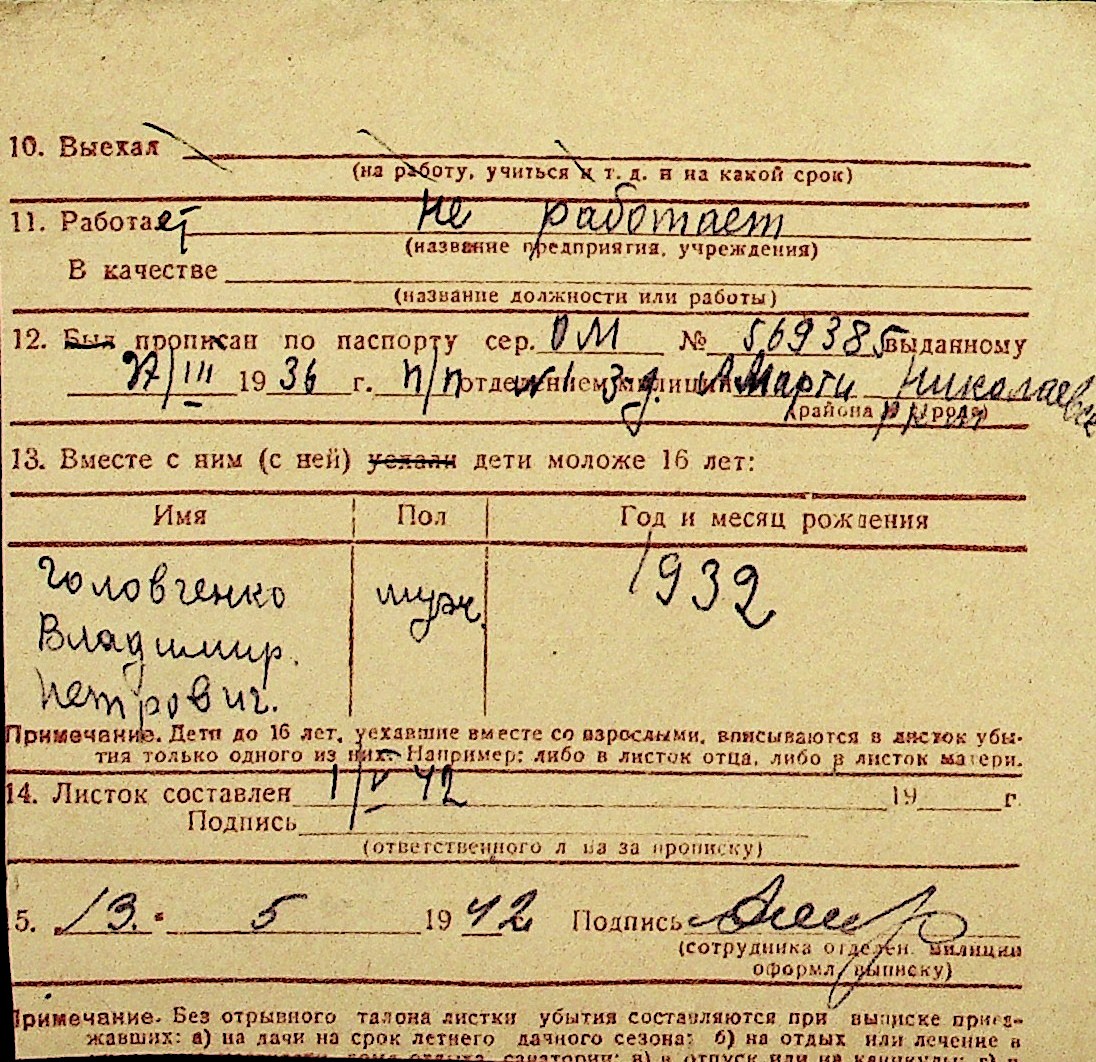 10. Выехал
(на работу, учиться и т. д. и на какой срок)
11. Работает не работает
(название предприятия, учреждения)
В качестве
(название должности или работы)
12. Был прописан по паспорту сер. ОМ № 569385 выданному
27/III 1936 г. п/п отделением милиции Марти Николаевск
(района города)
13. Вместе с ним (с ней) уехали дети моложе 16 лет:
Имя Пол Год и месяц рождения
Головченко муж 1932
Владимир
Петрович.
Примечание. Дети до 16 лет, уехавшие вместе со взрослыми, вписываются в листок убы-
тия только одного из них. Например: либо в листок отца, либо в листок матери.
14. Листок составлен 1/V 42 19 г.
Подпись
(ответственного лица за прописку)
5. 13. 5 1942 Подпись
(сотрудника отделен. милиции
оформл. выписку)
Примечание. Без отрывного талона листки убытия составляются при выписке приез-
жавших: а) на дачи на срок летнего дачного сезона; б) на отдых или лечение в
дома отдыха, санатории; в) в отпуск или на каникулы; г)